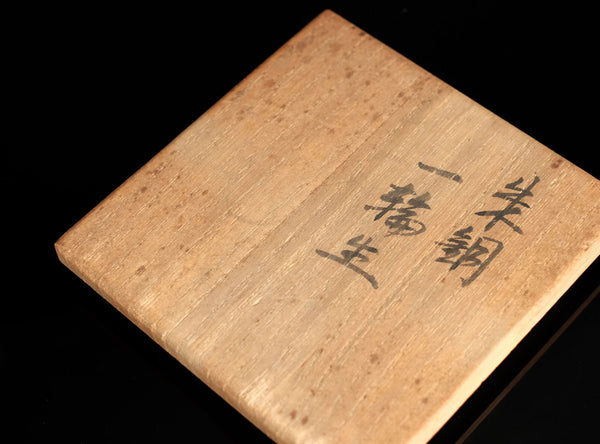 朱銅
一輪生